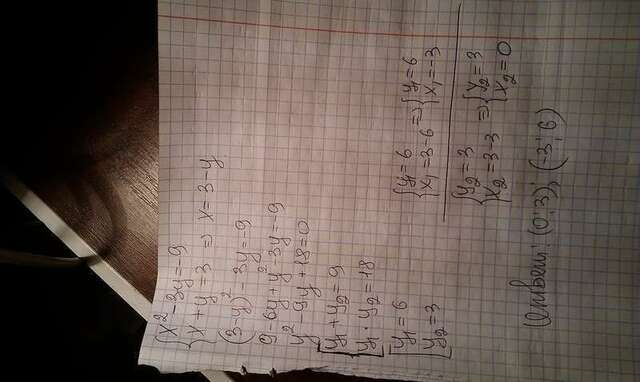 {x² - 3y = -9
{x + y = 3 ⇒ x = 3 - y
(3-y)² - 3y = -9
9 - 6y + y² - 3y = -9
y² - 9y + 18 = 0
[y₁ + y₂ = 9
[y₁ · y₂ = 18
[y₁ = 6
[y₂ = 3
{y₁ = 6 ⇒ {y₁ = 6
{x₁ = 3 - 6 {x₁ = -3
{y₂ = 3 ⇒ {y₂ = 3
{x₂ = 3 - 3 {x₂ = 0
Ответ: (0; 3); (-3; 6)